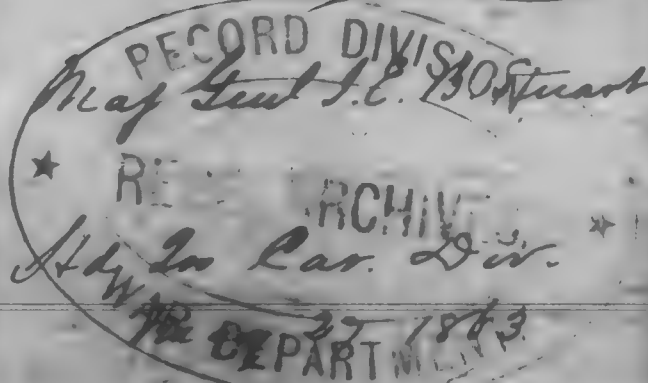 RECORD DIVISION
Maj Genl J.E.B. Stuart
RE ARCHIV
Hd Qrs Cav. Div.
1863
DEPARTMENT